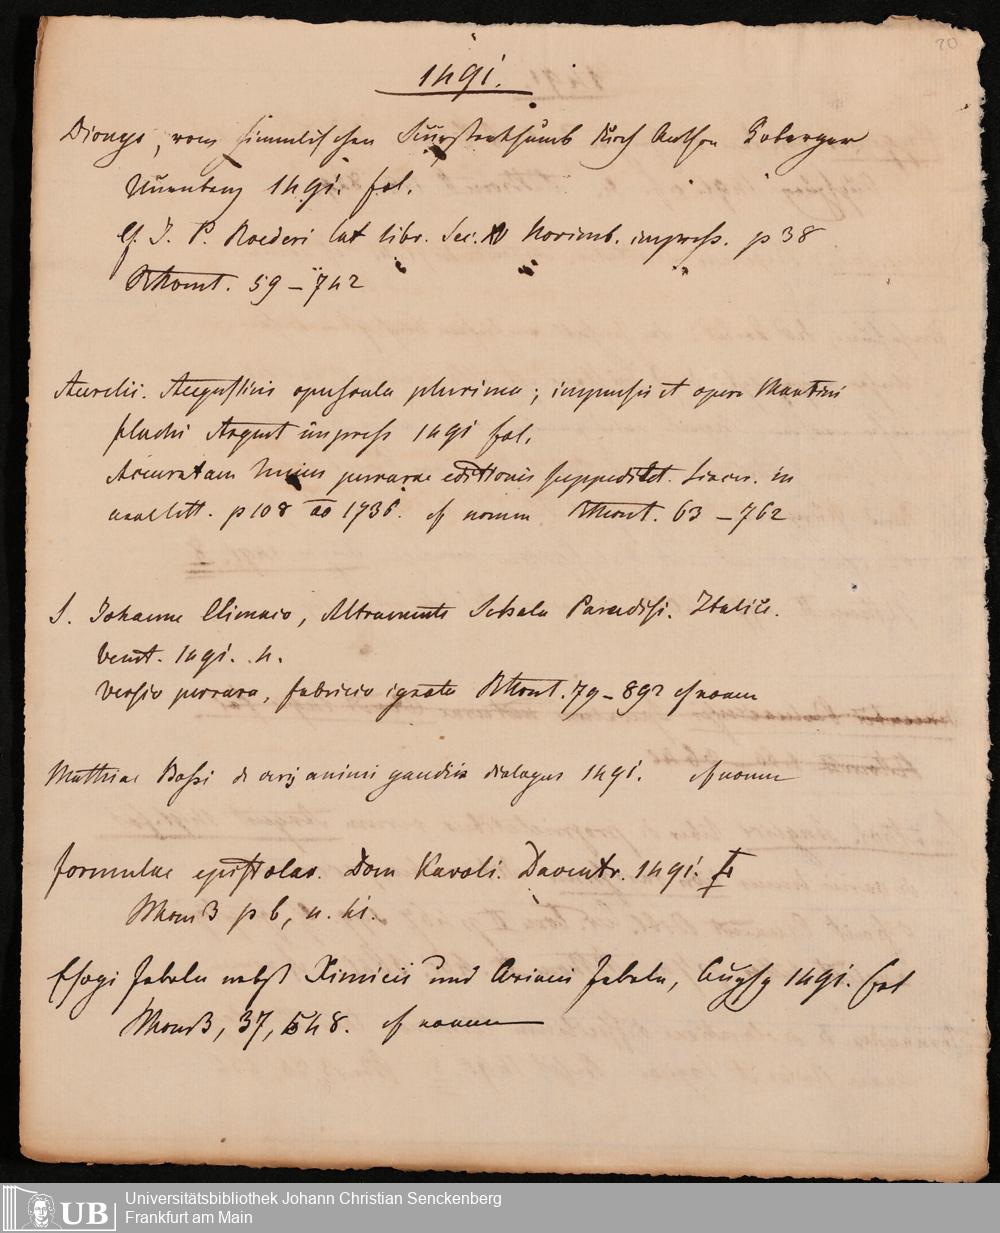 20
1491.
Dionys, vom himmlischen Fürstenthumb durch Anthon Koberger
Nürnberg 1491. fol.
cf. J. P. Roederi Cat. libr. Sec. XV Norimb. impress. p 38
59 – 742
Aurelii. Augustini opuscula plurima; impensis et opere Martini
flachi Argent impress 1491 fol.
Accuratam huius perrarae editionis suppeditat. in
p 108 ao 1736. cf 63 – 762
S. Johanne Climaco, Altramente Schala Paradisi. Italice.
Venet. 1491. 4.
Versio perrara, fabricio ignota 79 – 892 cf
Matthiae Bossi de veris animi gaudiis dialogus 1491. cf
formulae epistolar. Dom Karoli. Daventr. 1491. 4
p 6, n. 41.
Esopi Fabeln nebst Rimicii und Aviani Fabeln, Augsp 1491. fol
37, 548. cf
Universitätsbibliothek Johann Christian Senckenberg
Frankfurt am Main
UB